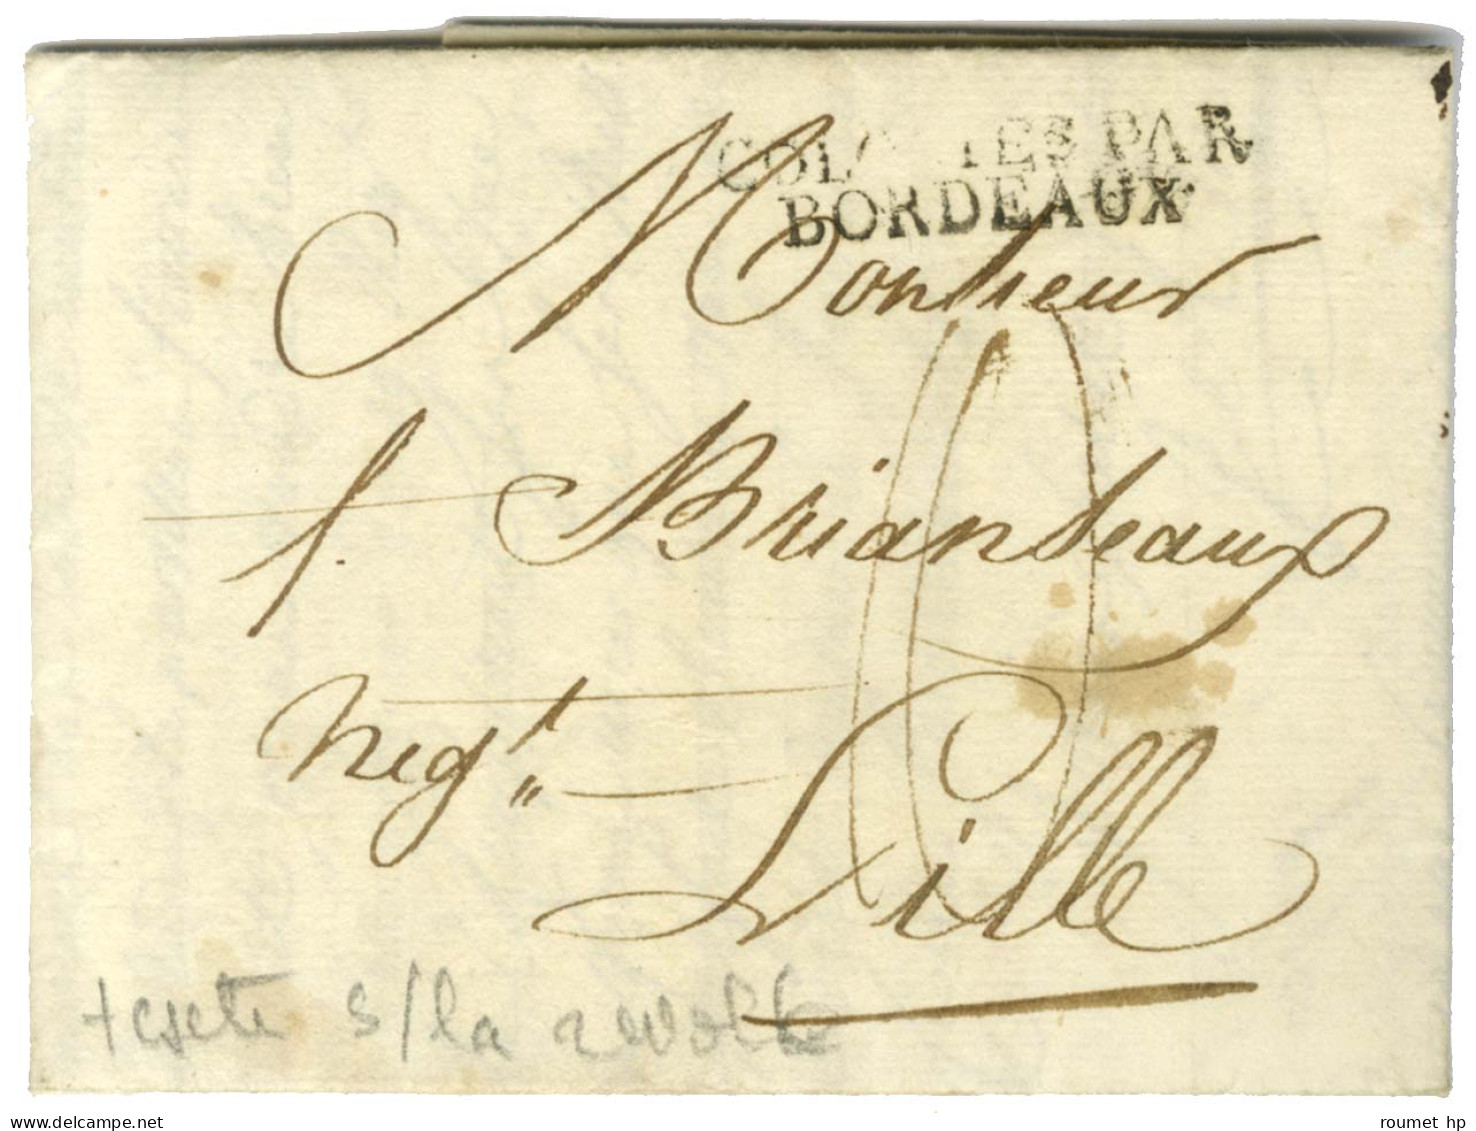 COL IES PAR
BORDEAUX
Monsieur
f. Briandeaux
Negt.
Lille
+ texte s/la révolte
www.delcampe.net
roumet hp